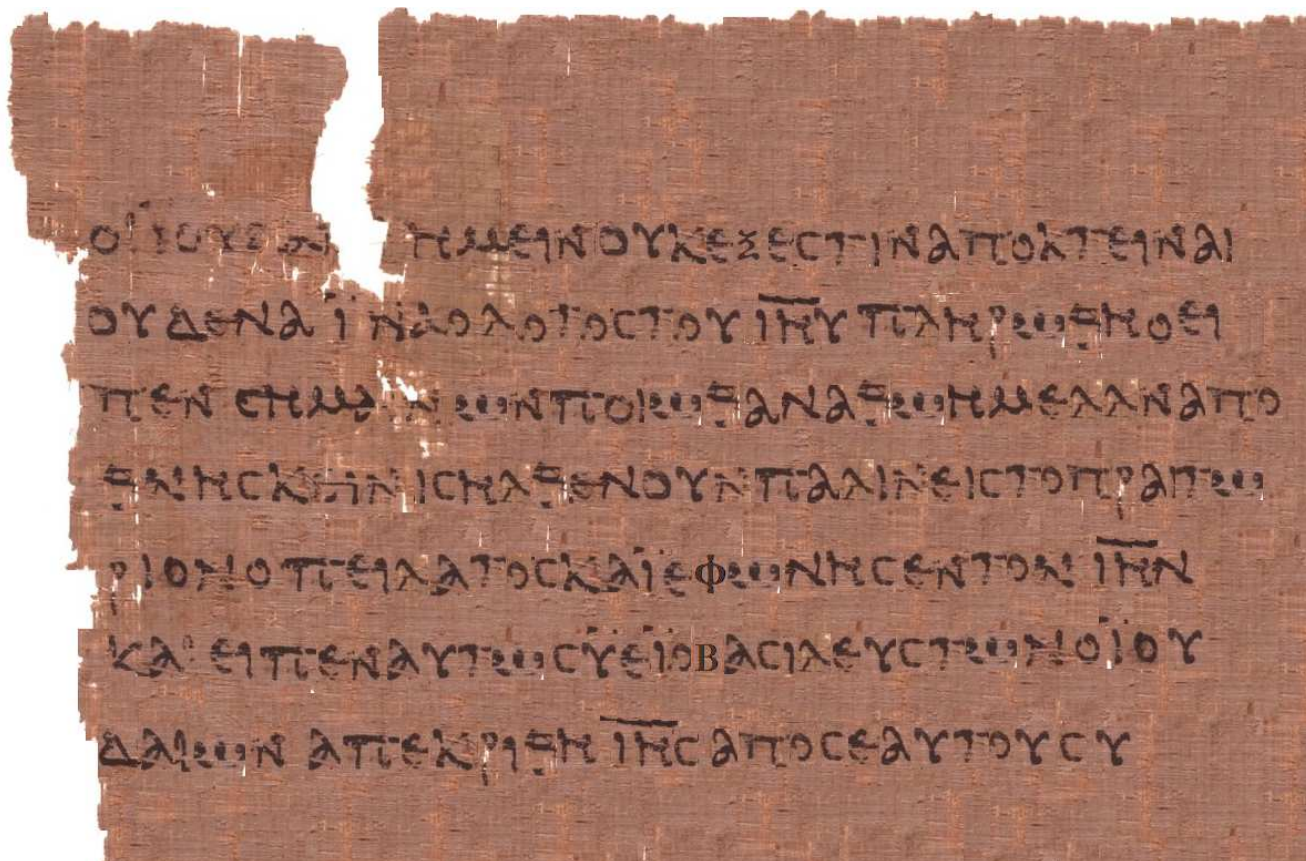 ΟΙΙΟΥΔΑΙ ΗΜΕΙΝΟΥΚΕΞΕϹΤΙΝΑΠΟΚΤΕΙΝΑΙ
ΟΥΔΕΝΑ ΪΝΑΟΛΟΓΟϹΤΟΥ Ι̅Η̅Υ ΠΛΗΡΩΘΗΟΕΙ
ΠΕΝ ϹΗΜΑΙΝΩΝΠΟΙΩΘΑΝΑΘΩΗΜΕΛΛΝΑΠΟ
ΘΝΗϹΚΕΙΝΙϹΗΛΘΕΝΟΥΝΠΑΛΙΝΕΙϹΤΟΠΡΑΙΤΩ
ΡΙΟΝΟΠΕΙΛΑΤΟϹΚΑΙΕΦΩΝΗϹΕΝΤΟΝ Ι̅Η̅Ν
ΚΑΙ ΕΙΠΕΝΑΥΤΩϹΫΕΪΟΒΑϹΙΛΕΥϹΤΩΝΟΪΟΥ
ΔΑΙΩΝ ΑΠΕΚΡΙΘΗ Ι̅Η̅Ϲ ΑΠΟϹΕΑΥΤΟΥϹΥ